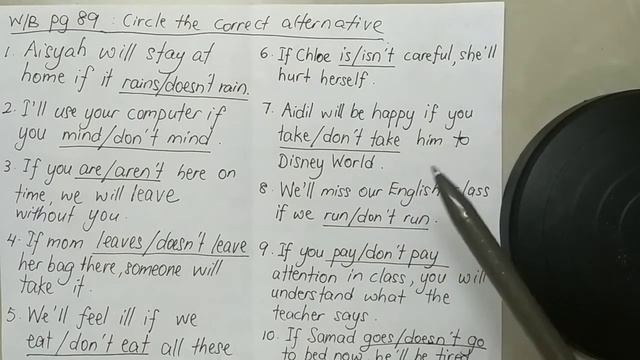 W/B pg 89 : Circle the correct alternative
1. Aisyah will stay at
home if it rains/doesn't rain.
2. I'll use your computer if
you mind/don't mind.
3. If you are/aren't here on
time, we will leave
without you.
4. If mom leaves/doesn't leave
her bag there, someone will
take it.
5. We'll feel ill if we
eat/don't eat all these
6. If Chloe is/isn't careful, she'll
hurt herself.
7. Aidil will be happy if you
take/don't take him to
Disney World.
8. We'll miss our English class
if we run/don't run.
9. If you pay/don't pay
attention in class, you will
understand what the
teacher says.
10. If Samad goes/doesn't go
to bed now, he'll be tired